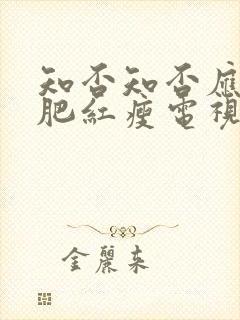 知否知否應
肥紅瘦電視
金麗來